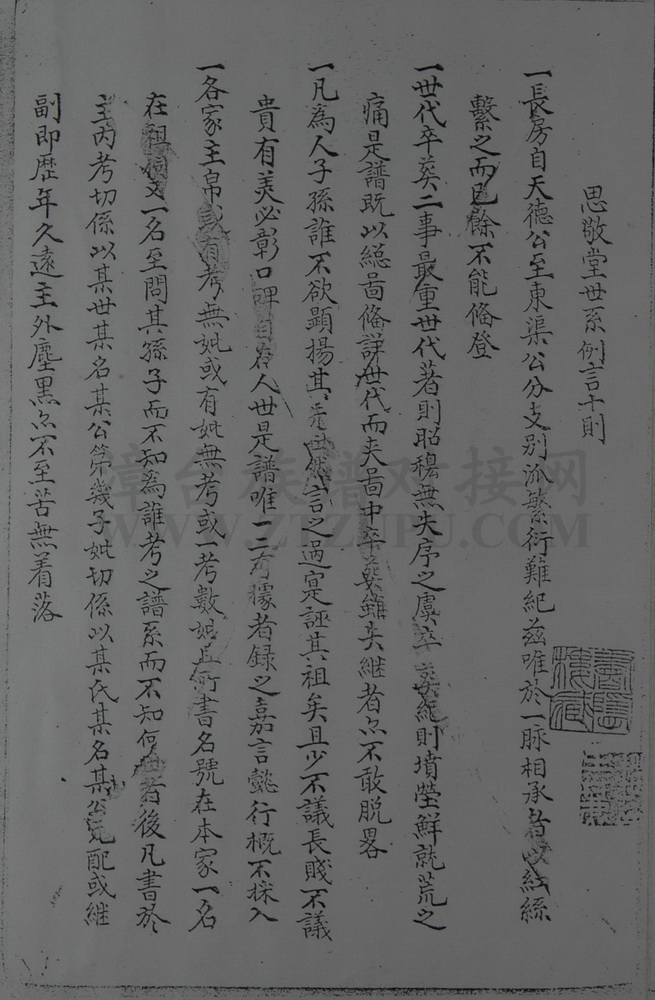 思敬堂世系例言十則
一長房自天德公至東渠公分支別派繁衍難紀茲唯於一脉相承者以紅絲
繫之而已餘不能偹登
一世代卒𦵏二事最重世代著則昭穆無失序之虞卒𦵏紀則墳塋鮮就荒之
痛是譜既以總啚偹詳世代而夫啚中卒𦵏雖矣継者亦不敢脱畧
一凡為人子孫誰不欲顕揚其先世然言之過寔誣其祖矣且少不議長賤不議
貴有美必彰口碑自在人世是譜唯一二有據者録之嘉言懿行概不採入
一各家主帛或有考無妣或有妣無考或一考數妣且所書名號在本家一名
在祖祠又一名至問其孫子而不知為誰考之譜系而不知何世者後凡書於
主内考切係以某世某名某公第幾子妣切係以某氏某名某公元配或継
副即歴年久遠主外塵黒亦不至苦無着落
章台族譜对接网
WWW.ZTZUPU.COM